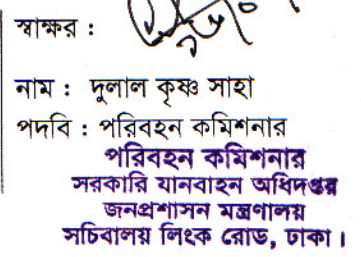 স্বাক্ষর :
নাম : দুলাল কৃষ্ণ সাহা
পদবি : পরিবহন কমিশনার
পরিবহন কমিশনার
সরকারি যানবাহন অধিদপ্তর
জনপ্রশাসন মন্ত্রণালয়
সচিবালয় লিংক রোড, ঢাকা।